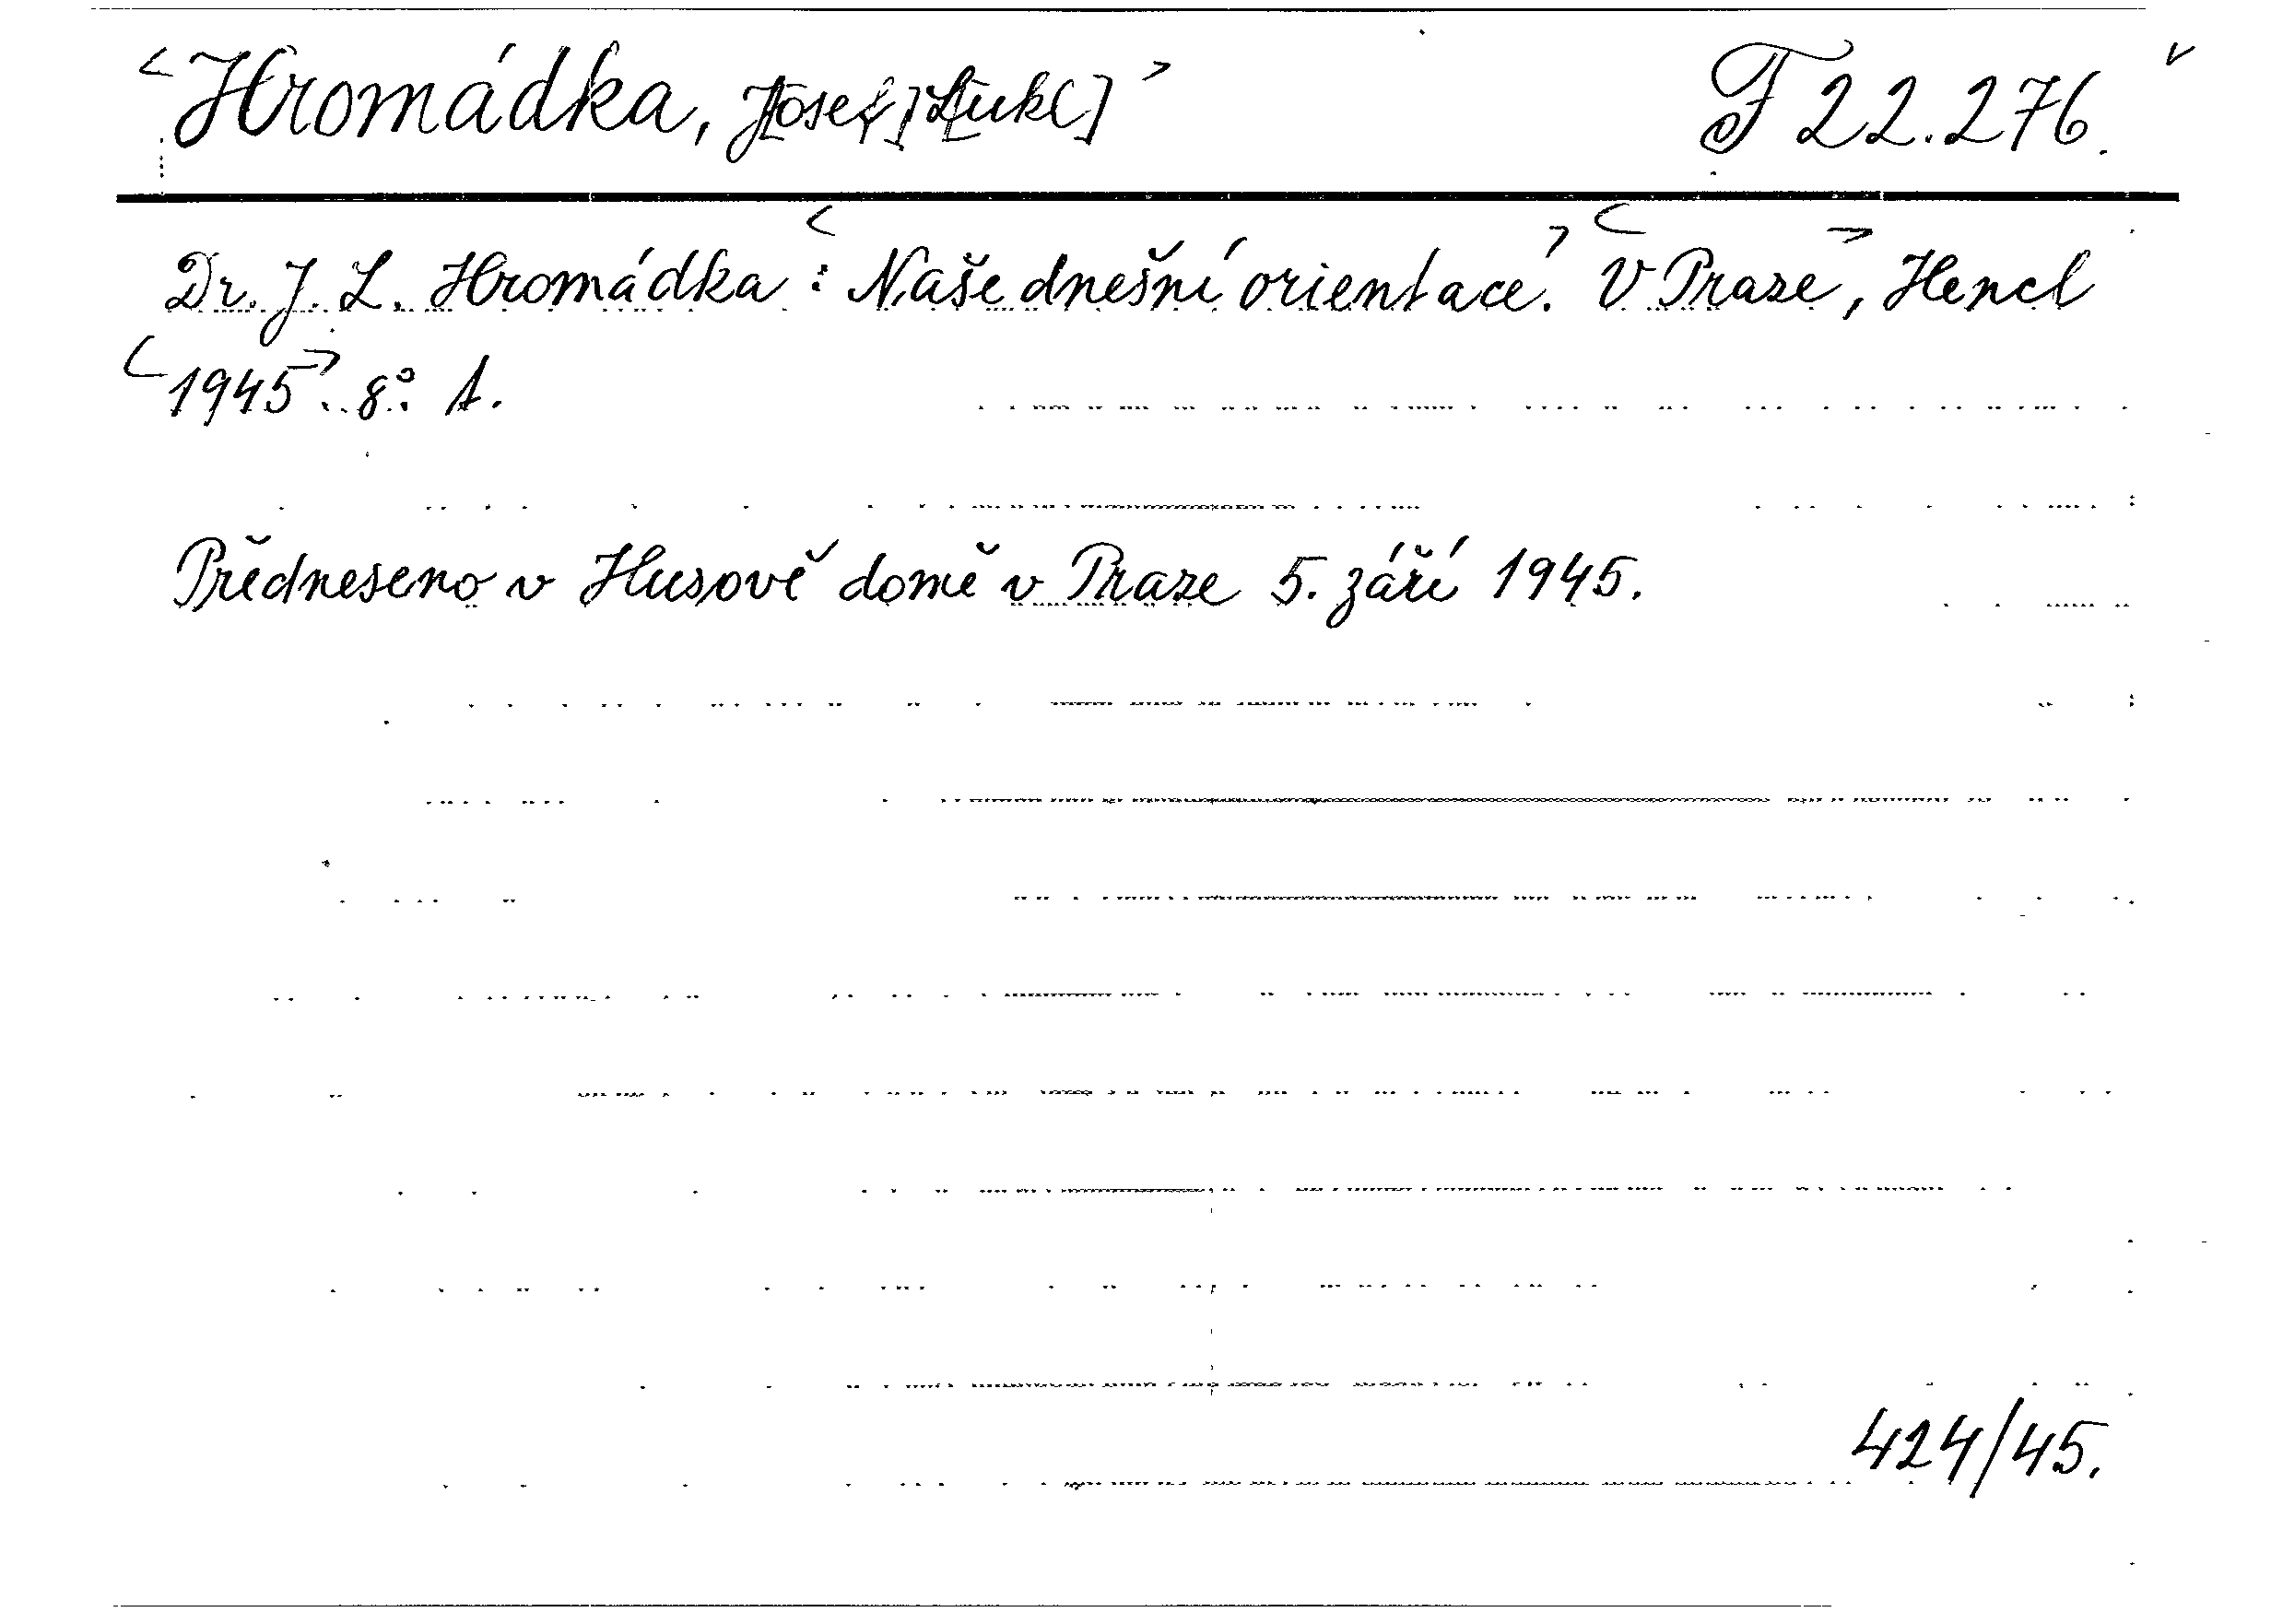 Hromádka, J[osef] L[ukl] F 22.276.
Dr. J. L. Hromádka: Naše dnešní orientace. V Praze, Hencl
1945. 8° A.
Předneseno v Husově domě v Praze 5. září 1945.
424/45.